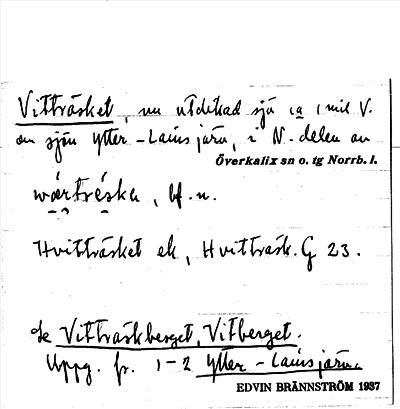 Vitträsket, nu utdikad sjö ca 1 mil V.
om sjön Ytter-Lainsjärv, i N. delen av
Överkalix sn o. tg Norrb. l.
bf. n.
Hvitträsket ek, Hvitträsk. G 23.
Se Vitträskberget, Vitberget.
Uppg. fr. 1-2 Ytter-Lainsjärv.
EDVIN BRÄNNSTRÖM 1937